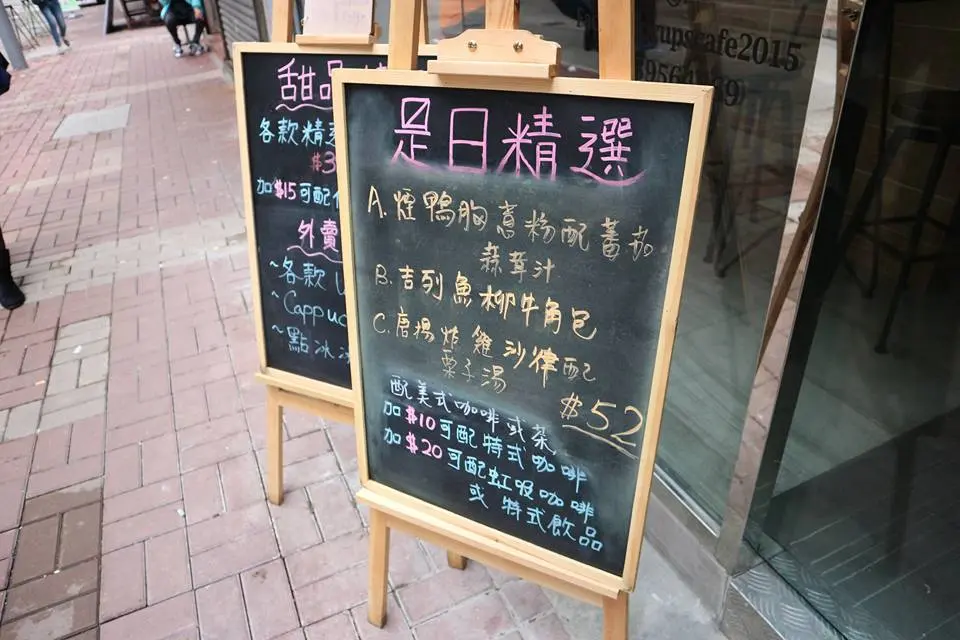 甜品
各款精
$3
加$15可配
外賣
~各款
~Cappuc
~點冰
是日精選
A.煙鴨胸意粉配蕃茄
蒜茸汁
B.吉列魚柳牛角包
C.唐揚炸雞沙律配
栗子湯
$52
配美式咖啡或茶
加$10可配特式咖啡
加$20可配虹吸咖啡
或特式飲品
upscafe2015